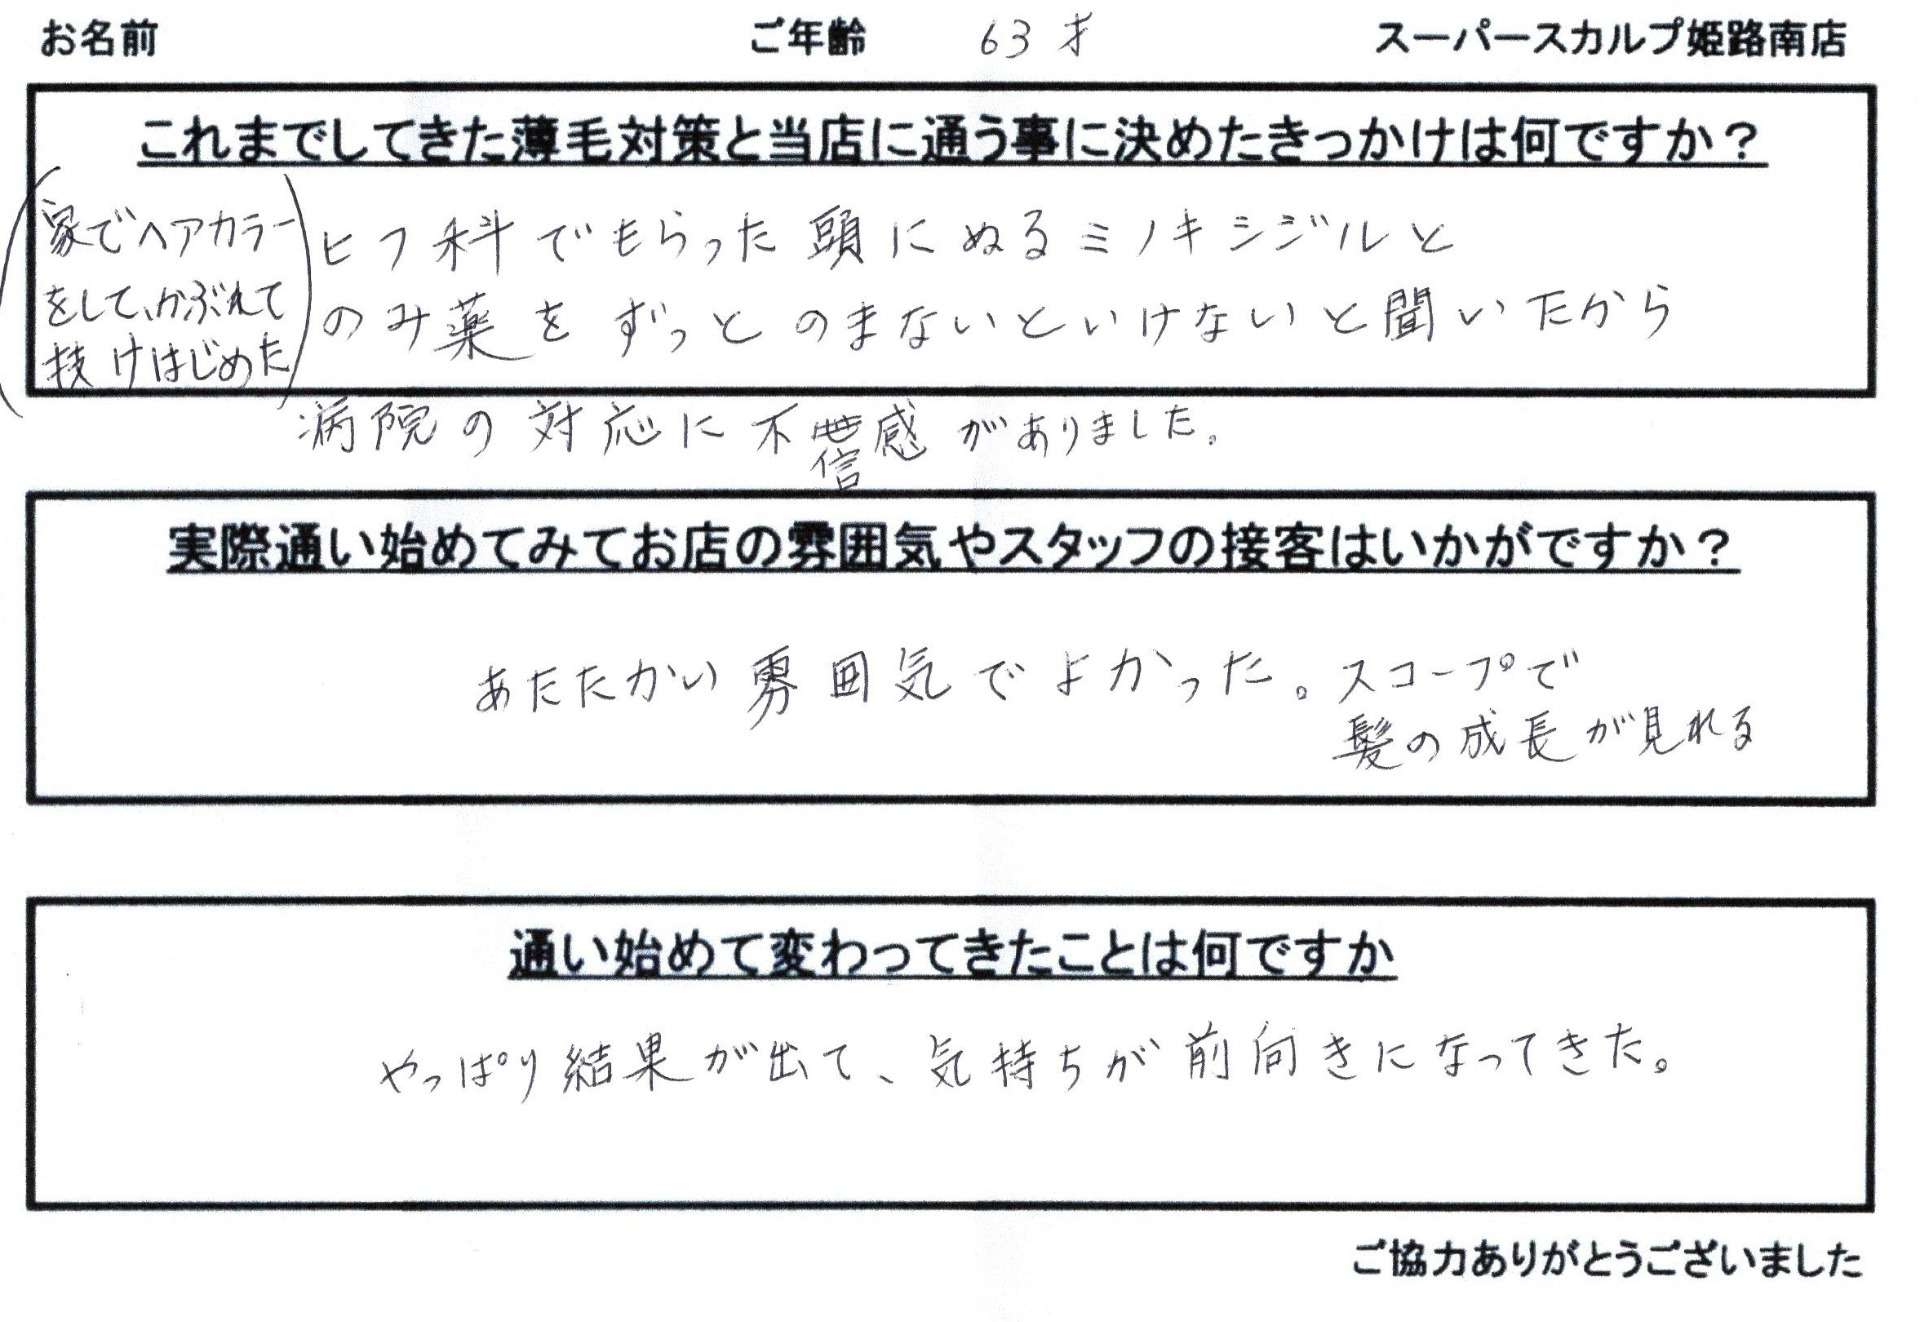 お名前 ご年齢 63才 スーパースカルプ姫路南店
これまでしてきた薄毛対策と当店に通う事に決めたきっかけは何ですか？
(家でヘアカラー
をして、かぶれて
技けはじめた)
ヒフ科でもらった頭にぬるミノキシジルと
のみ薬をずっとのまないといけないと聞いたから
病院の対応に不信感がありました。
実際通い始めてみてお店の雰囲気やスタッフの接客はいかがですか？
あたたかい雰囲気でよかった。スコープで
髪の成長が見れる
通い始めて変わってきたことは何ですか
やっぱり結果が出て、気持ちが前向きになってきた。
ご協力ありがとうございました